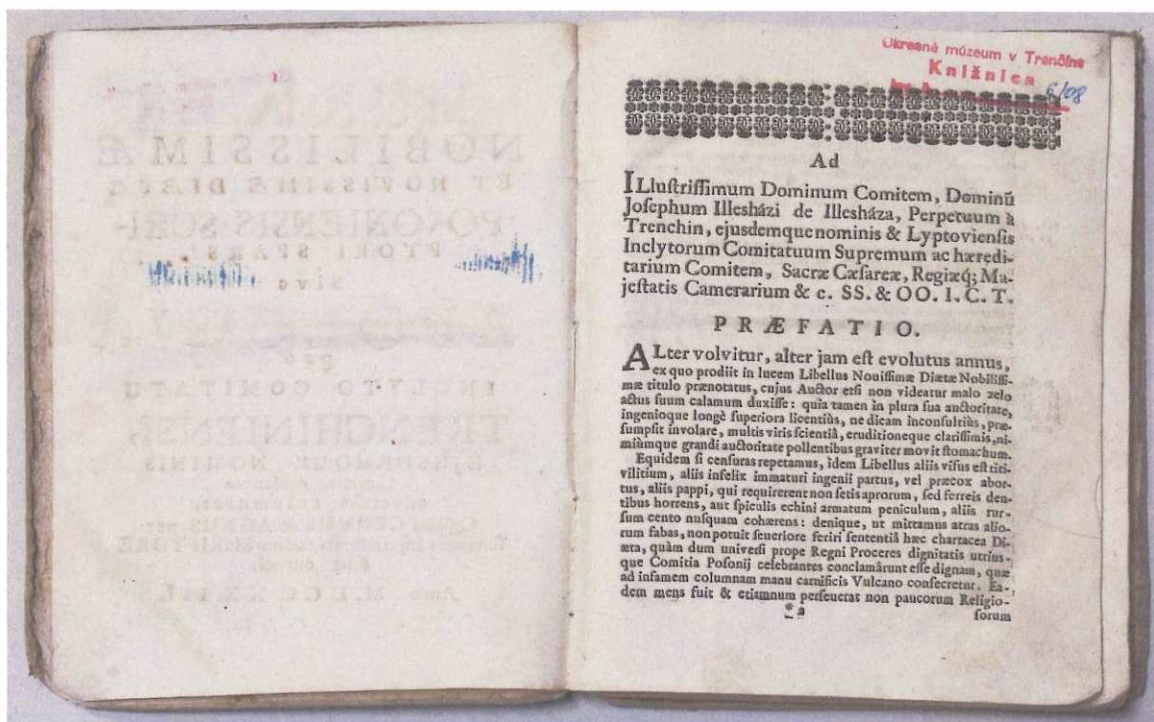 Okresné múzeum v Trenčíne
Knižnica
6/08
Ad
ILluſtriſſimum Dominum Comitem, Dominū
Joſephum Illesházi de Illesháza, Perpetuum à
Trenchin, ejusdemque nominis & Lyptovienſis
Inclytorum Comitatuum Supremum ac hæredi-
tarium Comitem, Sacræ Cæſareæ, Regiæq́; Ma-
jeſtatis Camerarium & c. SS. & OO. I. C. T.
PRÆFATIO.
ALter volvitur, alter jam eſt evolutus annus,
ex quo prodiit in lucem Libellus Nouiſſimæ Diætæ Nobiliſſi-
mæ titulo prænotatus, cujus Auctor etſi non videatur malo zelo
actus ſuum calamum duxiſſe: quia tamen in plura ſua auctoritate,
ingenioque longè ſuperiora licentiùs, ne dicam inconſultiùs, præ-
ſumpſit involare, multis viris ſcientiâ, eruditioneque clariſſimis, ni-
miùmque grandi auctoritate pollentibus graviter movit ſtomachum.
Equidem ſi cenſuras repetamus, idem Libellus aliis viſus eſt titi-
vilitium, aliis infelix immaturi ingenii partus, vel præcox abor-
tus, aliis pappi, qui requirerent non ſetis aprorum, ſed ferreis den-
tibus horrens, aut ſpiculis echini armatum peniculum, aliis rur-
ſum cento nuſquam cohærens: denique, ut mittamus atras alio-
rum fabas, non potuit ſeueriore feriri ſententiâ hæc chartacea Di-
æta, quàm dum univerſi prope Regni Proceres dignitatis utrius-
que Comitia Poſonij celebrantes conclamârunt eſſe dignam, quæ
ad infamem columnam manu carnificis Vulcano conſecretur. Ea-
dem mens fuit & etiamnum perſeuerat non paucorum Religio-
*a
ſorum